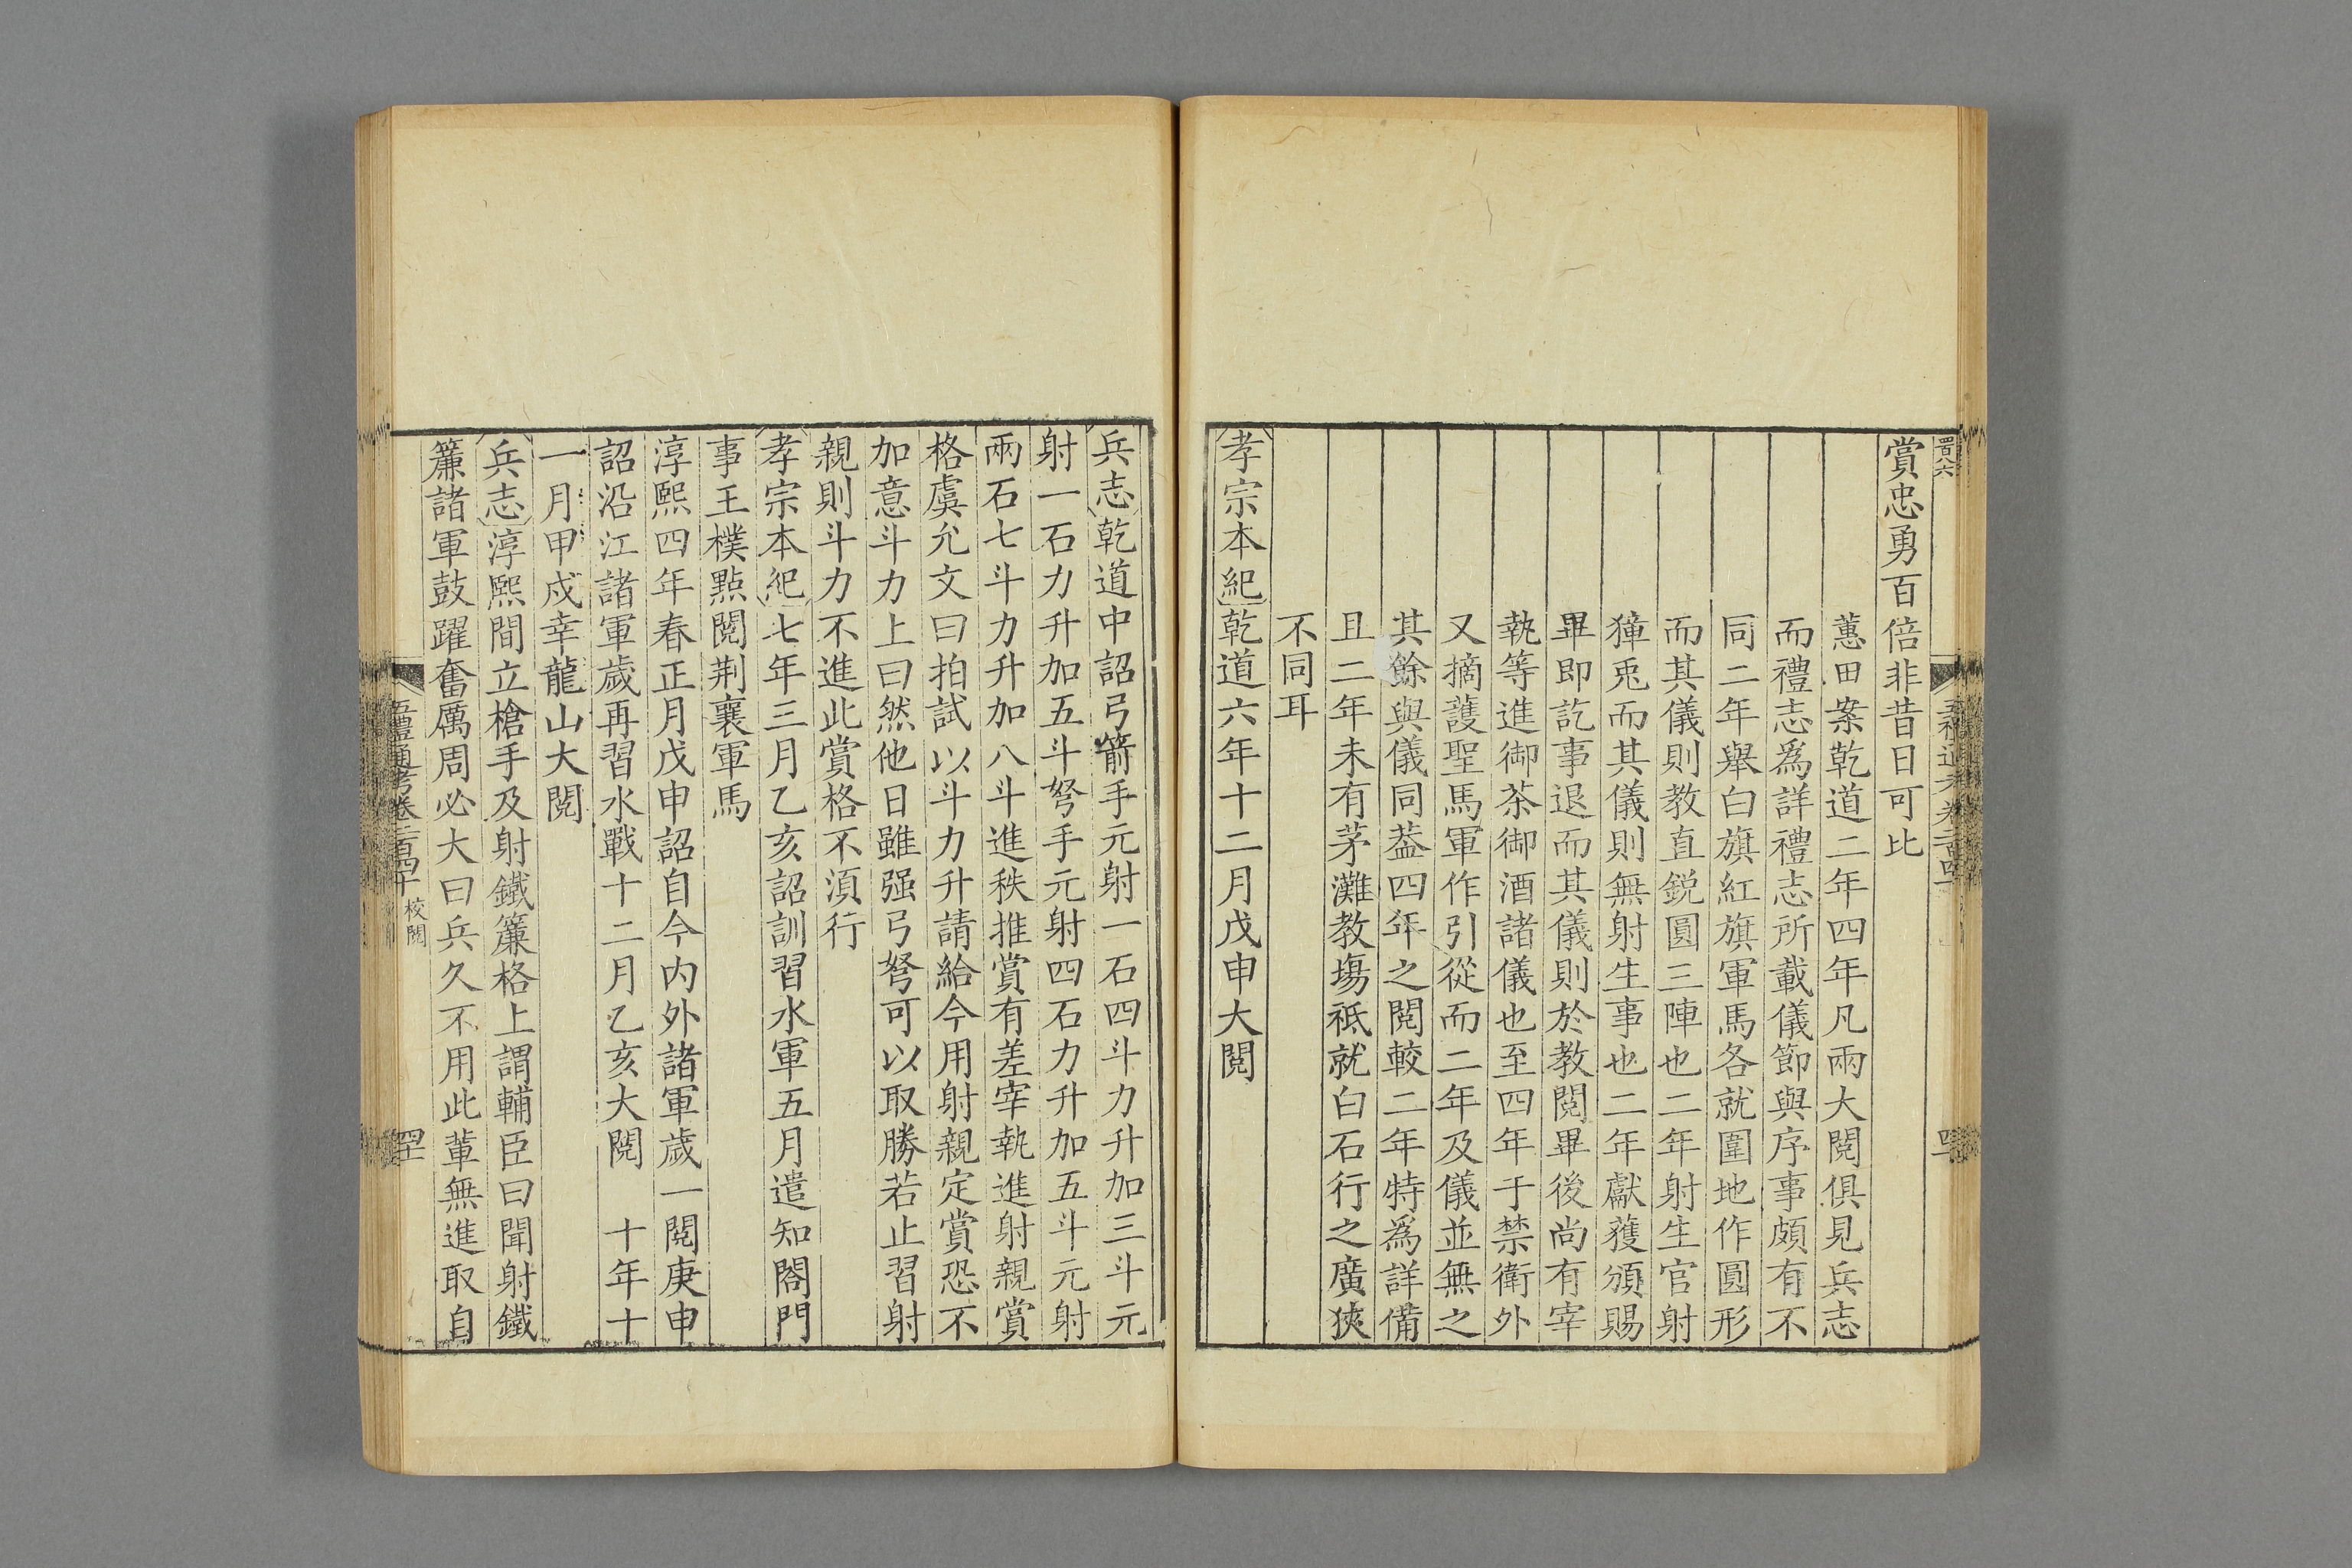 賞忠勇百倍非昔日可比
蕙田案乾道二年四年凡兩大閱俱見兵志
而禮志爲詳禮志所載儀節與序事頗有不
同二年舉白旗紅旗軍馬各就圍地作圓形
而其儀則教直銳圓三陣也二年射生官射
獐兎而其儀則無射生事也二年獻獲頒賜
畢即訖事退而其儀則於教閱畢後尚有宰
執等進御茶御酒諸儀也至四年于禁衛外
又摘護聖馬軍作引從而二年及儀並無之
其餘與儀同葢四年之閱較二年特爲詳備
且二年未有茅灘教塲祇就白石行之廣狹
不同耳
孝宗本紀乾道六年十二月戊申大閱
兵志乾道中詔弓箭手元射一石四斗力升加三斗元
射一石力升加五斗弩手元射四石力升加五斗元射
兩石七斗力升加八斗進秩推賞有差宰執進射親賞
格虞允文曰拍試以斗力升請給今用射親定賞恐不
加意斗力上曰然他日雖强弓弩可以取勝若止習射
親則斗力不進此賞格不須行
孝宗本紀七年三月乙亥詔訓習水軍五月遣知閤門
事王樸點閱荆襄軍馬
淳熙四年春正月戊申詔自今内外諸軍歲一閱庚申
詔沿江諸軍歲再習水戰十二月乙亥大閱　十年十
一月甲戍幸龍山大閱
兵志淳熙間立槍手及射鐵簾格上謂輔臣曰聞射鐵
簾諸軍鼓躍奮厲周必大曰兵久不用此輩無進取自
五禮通考卷二百四十　校閱